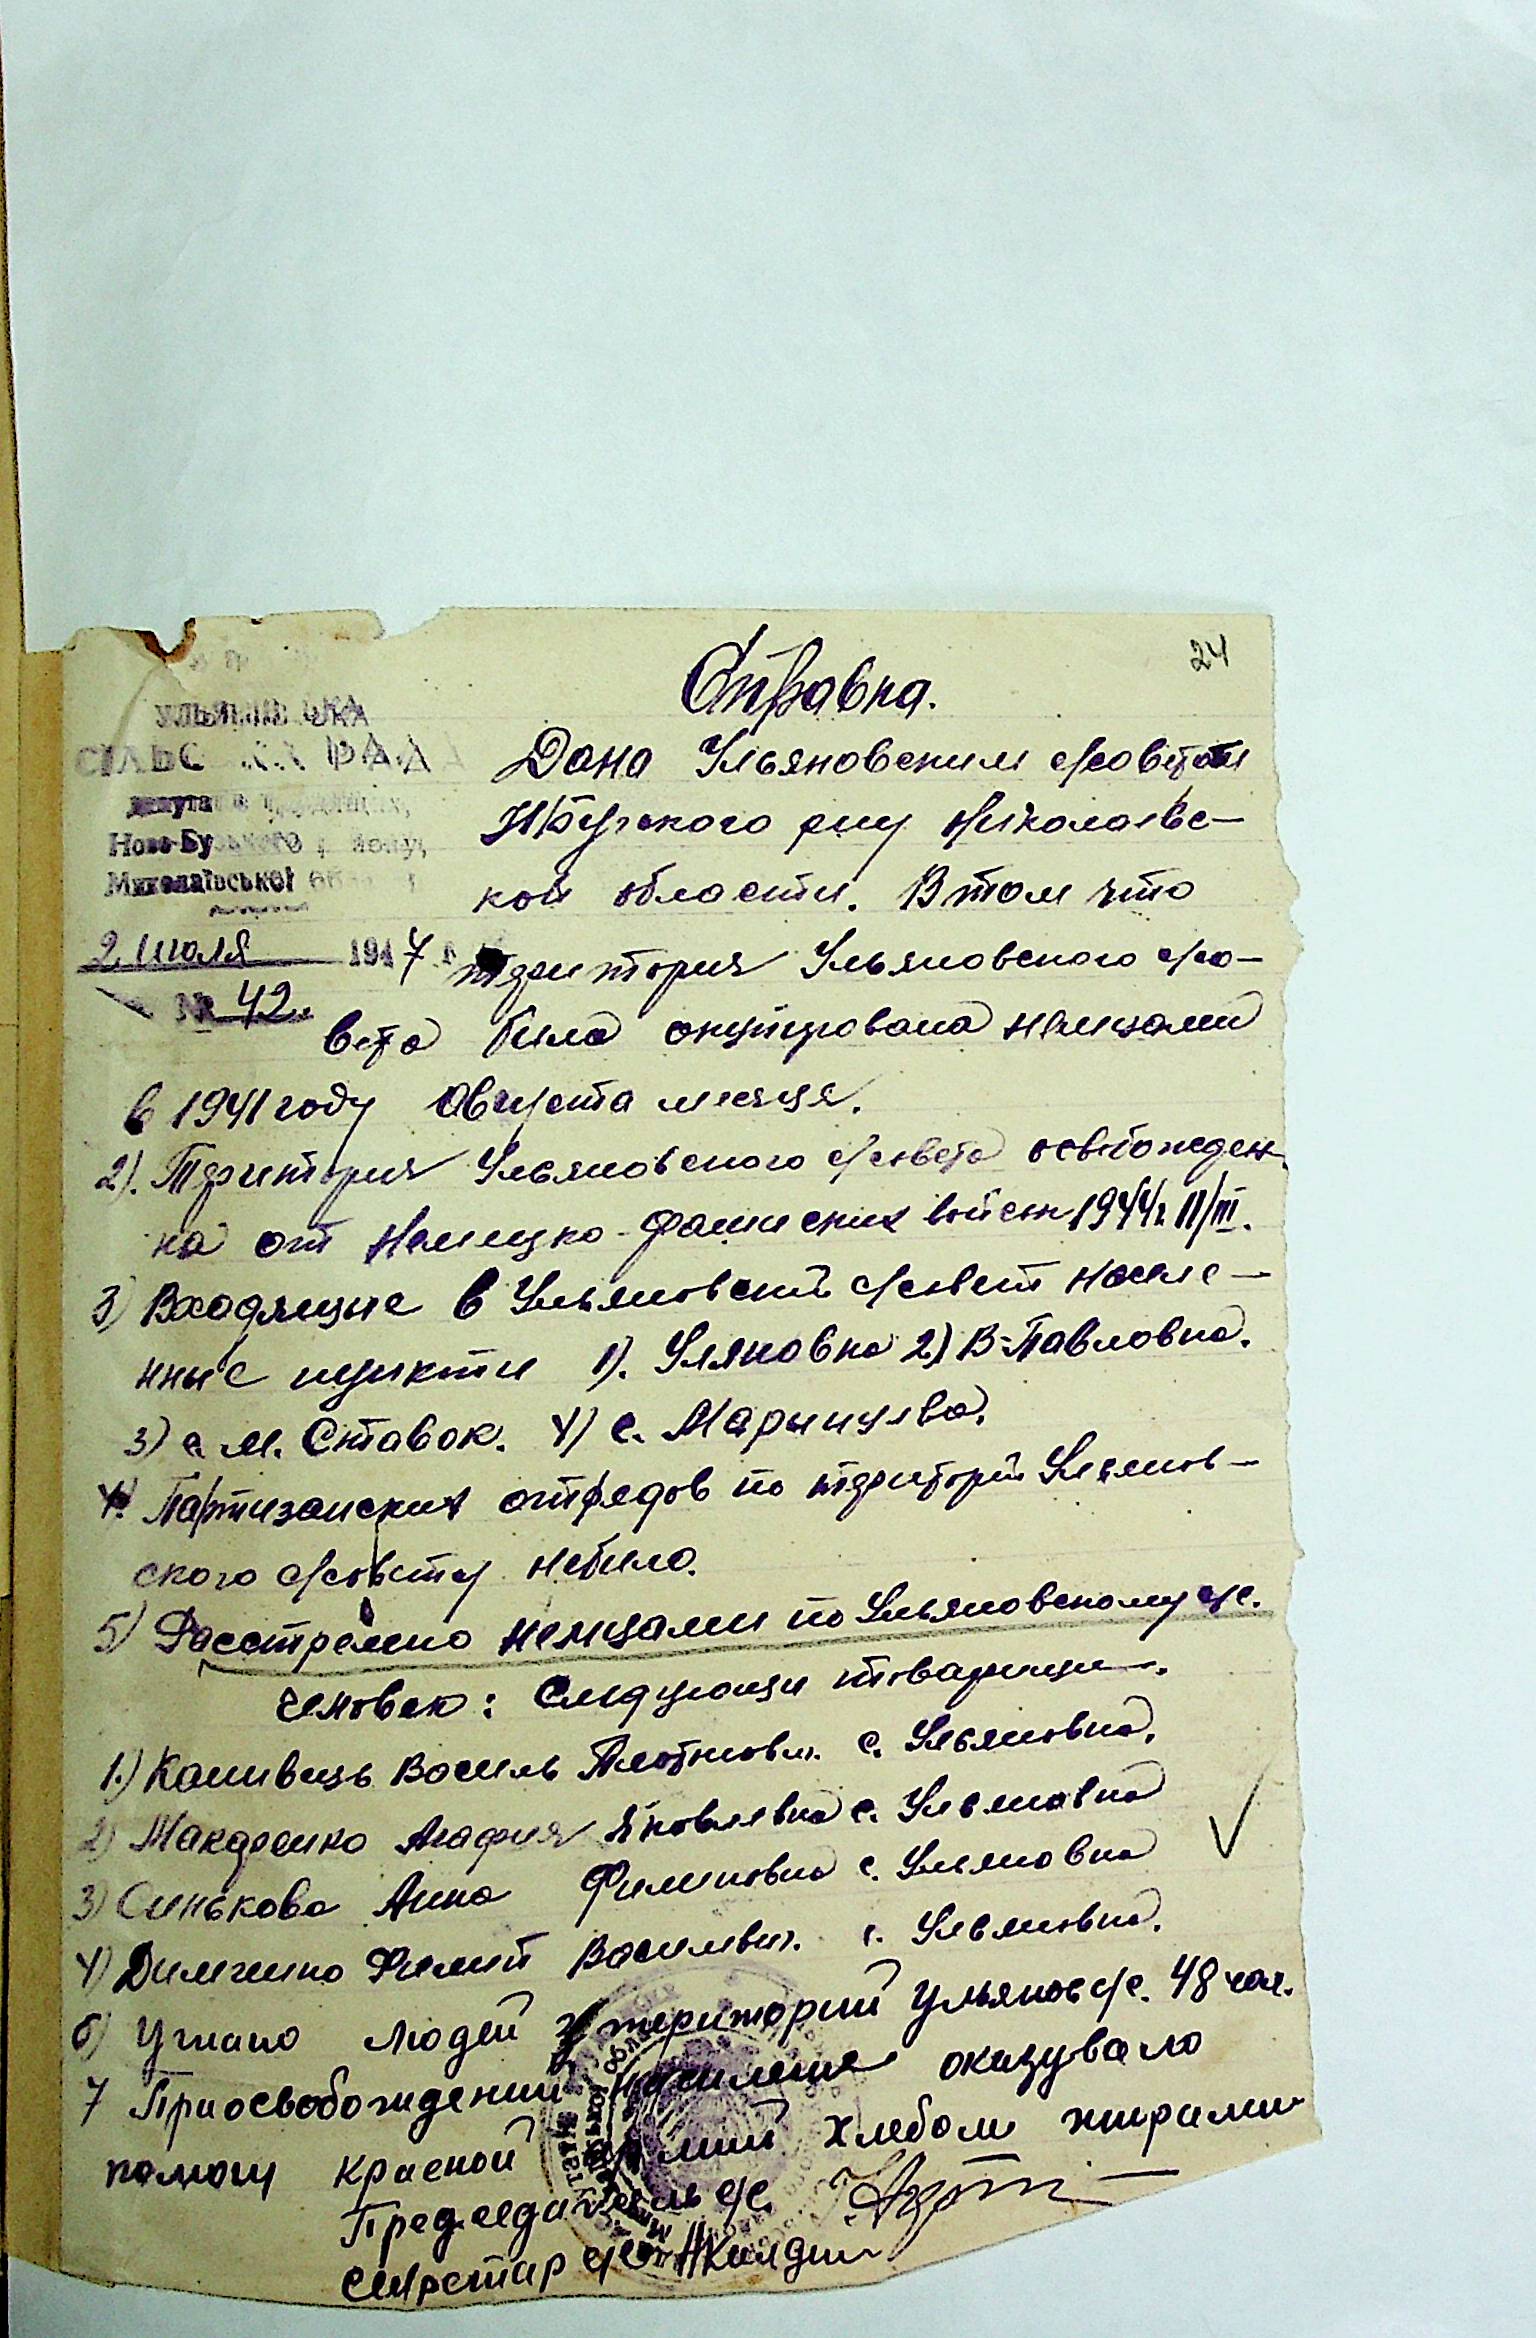 24
Справка.
УЛЬЯНІВСЬКА
СІЛЬСЬКА РАДА
депутатів трудящих,
Ново-Бузького району,
Миколаївської обл
2 июля 1947 г.
№ 42.
Дана Ульяновским с/советом
Н/Бугского р-ну Николаевс-
кой области. В том что
територия Ульяновского с/со-
вета била окупирована немцами
в 1941 году Августа месяця.
2). Територия Ульяновского с/совета освобожден-
на от Немецко-фашиских войск 1944 г. 11/III.
3) Входящие в Ульяновский с/совет насиле-
нные пункти 1). Уляновка 2) В-Павловка.
3) с. М. Ставок. 4) с. Марынцева.
4. Партизанских отрядов по територий Улянов-
ского с/совету небило.
5) Расстреляно немцами по Ульяновскому с/с.
человек: Следующи товарищи.
1.) Василь с. Ульяновка.
2) Агафия Яковлевна с. Ульяновка
3) Синькова Анна Филиповна с. Уляновка
4) Василевич. с. Ульяновка.
6) Угнано людей з територий Ульянов с/с. 48 чел.
7 Приосвобождений насиления оказувало
помощ Красной Армий хлебом жирами
Председатель с/с.
Секретар с/с